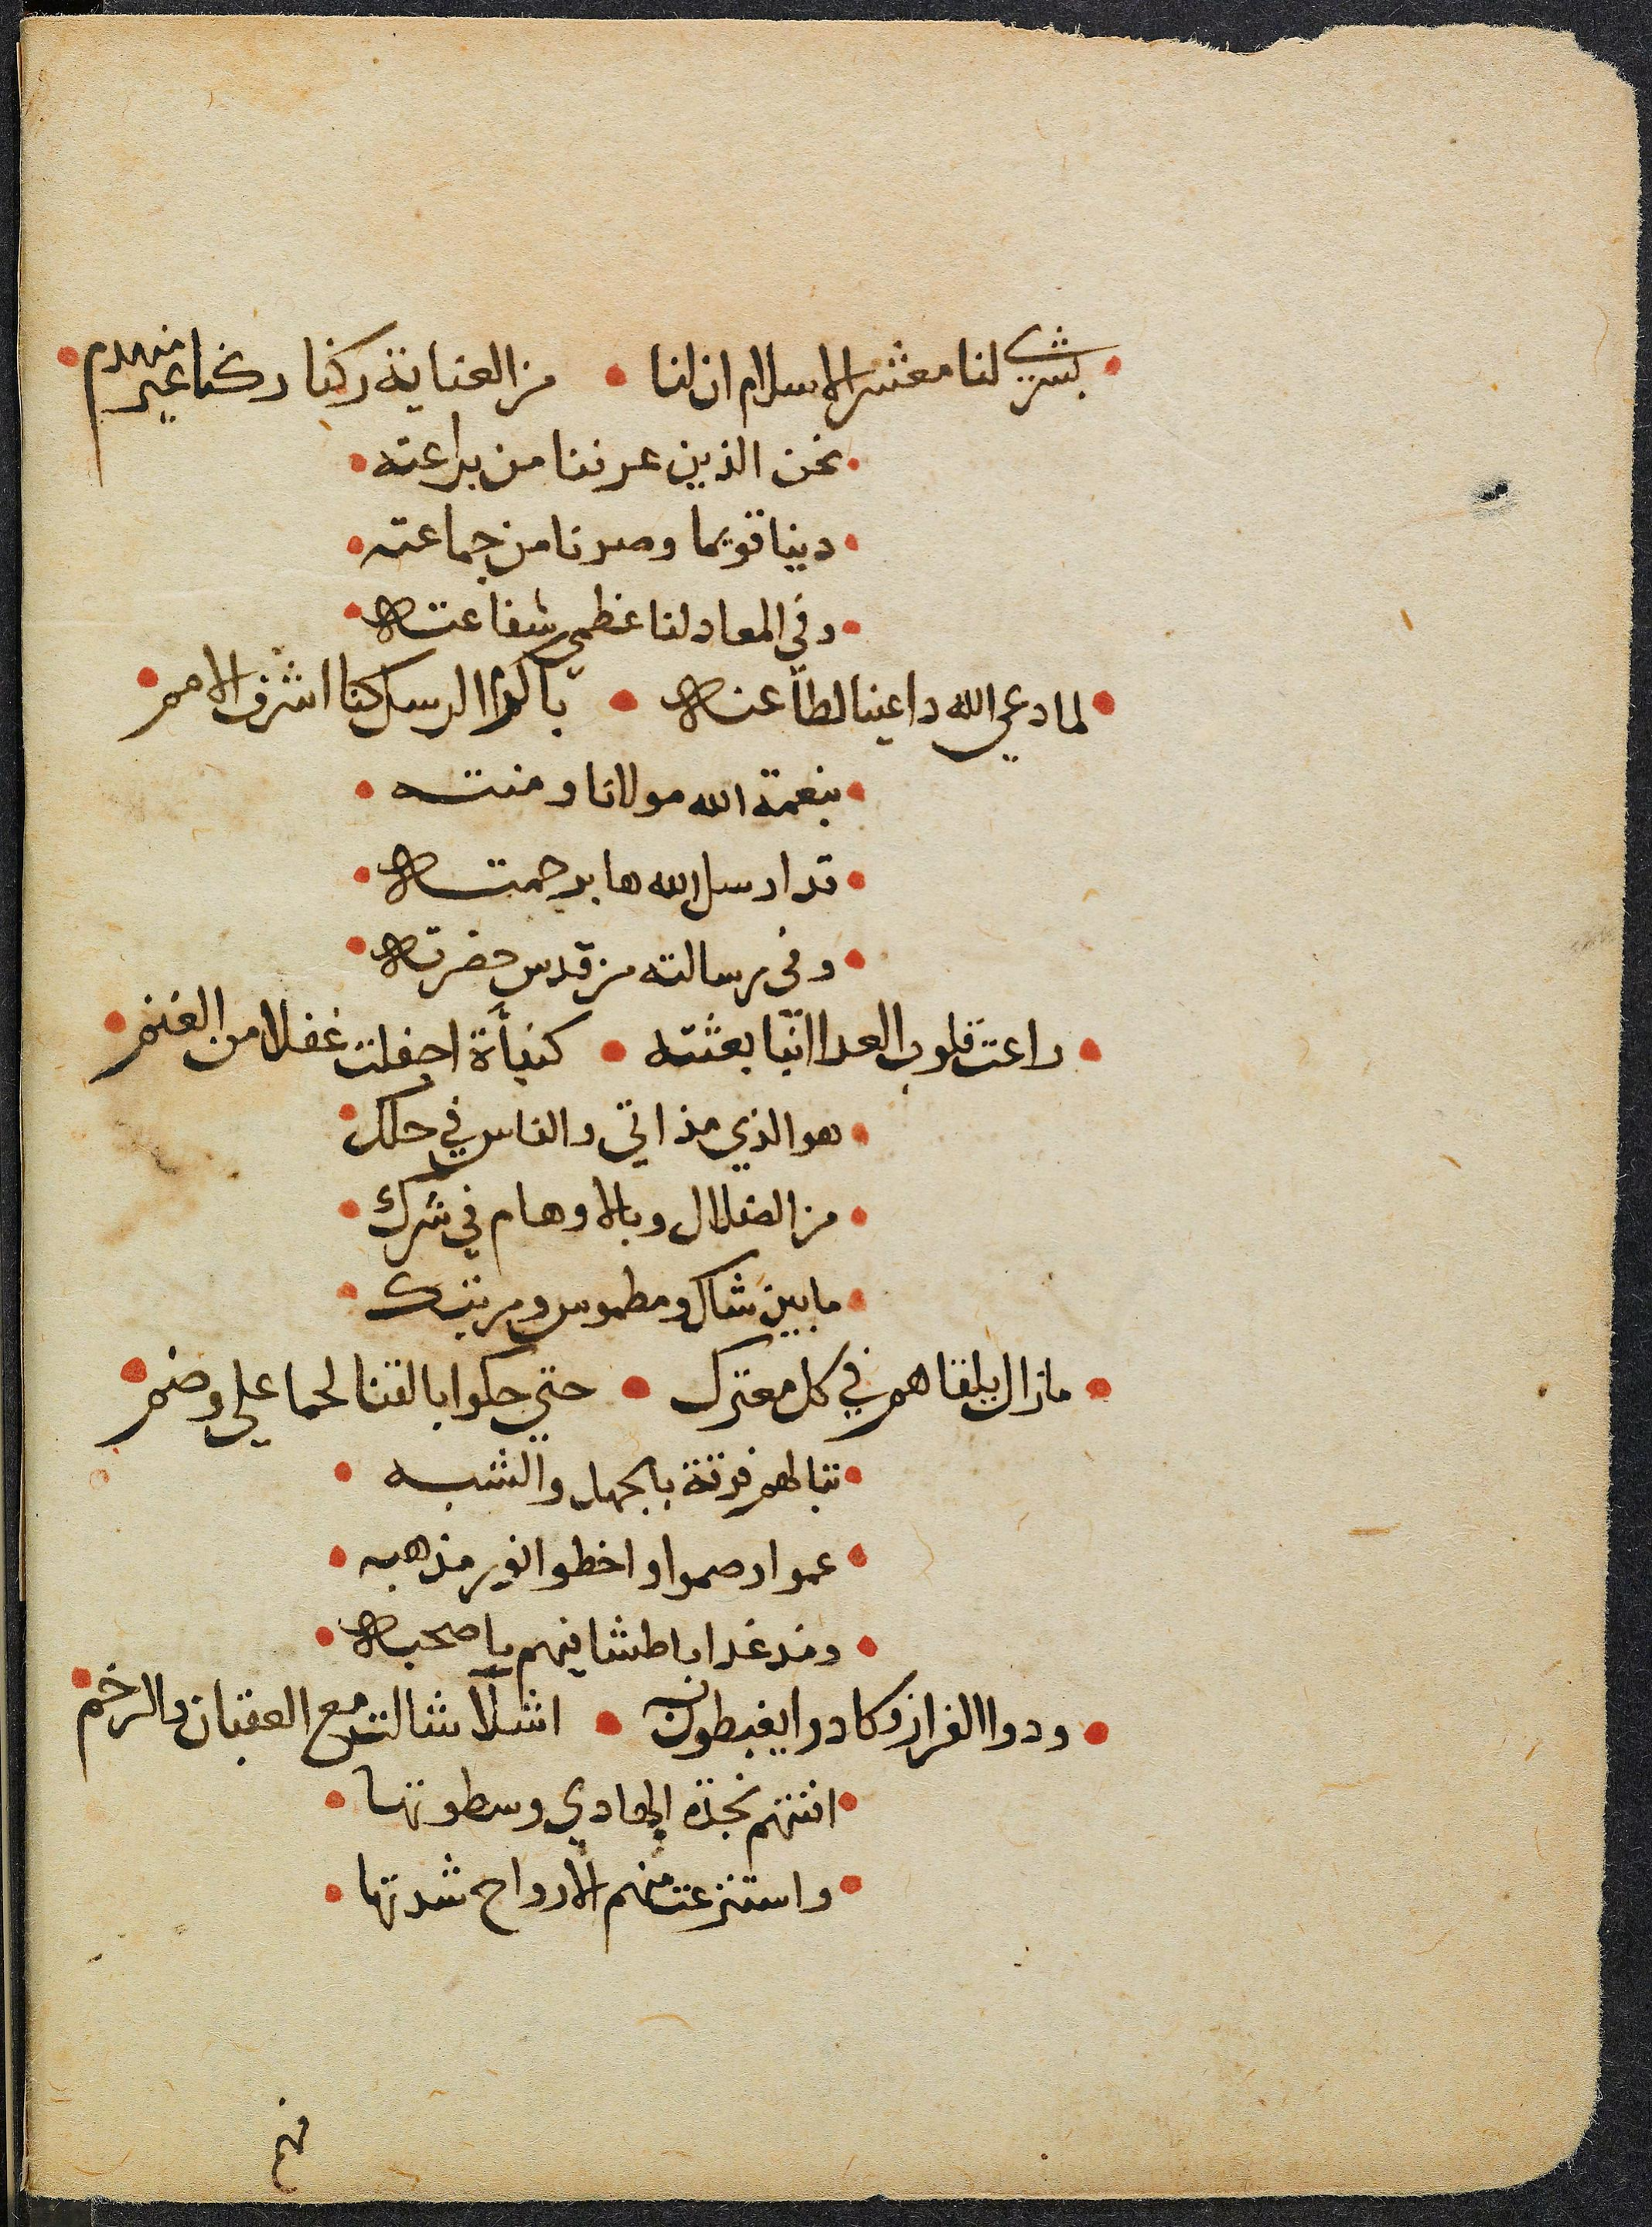 بشري لنا معشر الاسلام ان لنا • من العناية ركنا ركنا غير منهدم
نحن الذين عرفنا من براعته
دينا قويما وصرنا من جماعته
وفي المعاد لنا عظمي شفاعته
لما دعي الله داعينا لطاعته • باكرم الرسل كنا اشرف الامم
بنعمة الله مولانا ومنته
قد ارسل الله ها برحمته
وفي رسالته من قدس حضرته
راعت قلوب العدا انبا بعثته • كنبأة اجفلت غفلا من الغنم
هو الذي مذ اتي والناس في حلك
من الضلال وبالاوهام في شرك
ما بين شاك ومطموس ومرتبك
مازال يلقاهم في كل معترك • حتي حكوا بالقنا لحما علي وضم
تبا لهم فرقة بالجهل والشبه
عموا وصموا واخطوا نور مذهبه
ومذ غدا باطشا فيهم باصحبه
ودوا الفرار وكادوا يغبطون به • اشلا شالت مع العقبان والرخم
افنتهم نجدة الهادي وسطوتها
واستنزعت منهم الارواح شدتها